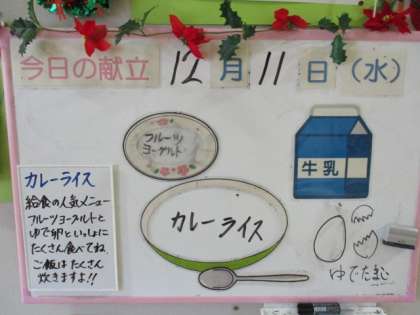 今日の献立 12月11日(水)
フルーツ
ヨーグルト
牛乳
カレーライス
ゆでたまご
カレーライス
給食の人気メニュー
フルーツヨーグルトと
ゆで卵といっしょに
たくさん食べてね。
ご飯はたくさん
炊きますよ!!